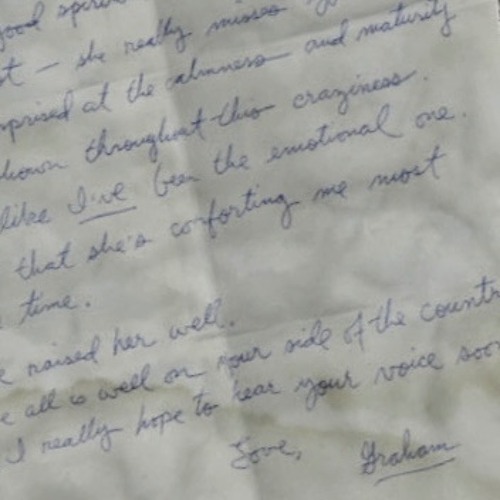 good spirits
st — she really misses
at the calmness and maturity
throughout this craziness.
like I've been the emotional one.
that she's comforting me most
time.
raised her well.
all is well on your side of the countr
I really hope to hear your voice soon
Love, Graham